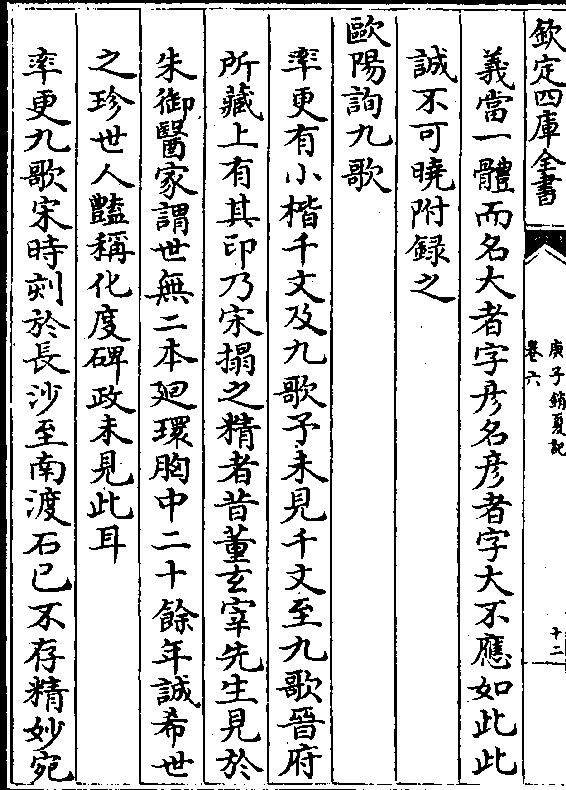 欽定四庫全書
庚子銷夏記
卷六
十二
義當一體而名大者字彦名彦者字大不應如此此
誠不可曉附録之
歐陽詢九歌
率更有小楷千文及九歌予未見千文至九歌晉府
所藏上有其印乃宋搨之精者昔董玄宰先生見於
朱御醫家謂世無二本廻環胸中二十餘年誠希世
之珍世人豔稱化度碑政未見此耳
率更九歌宋時刻於長沙至南渡石已不存精妙宛